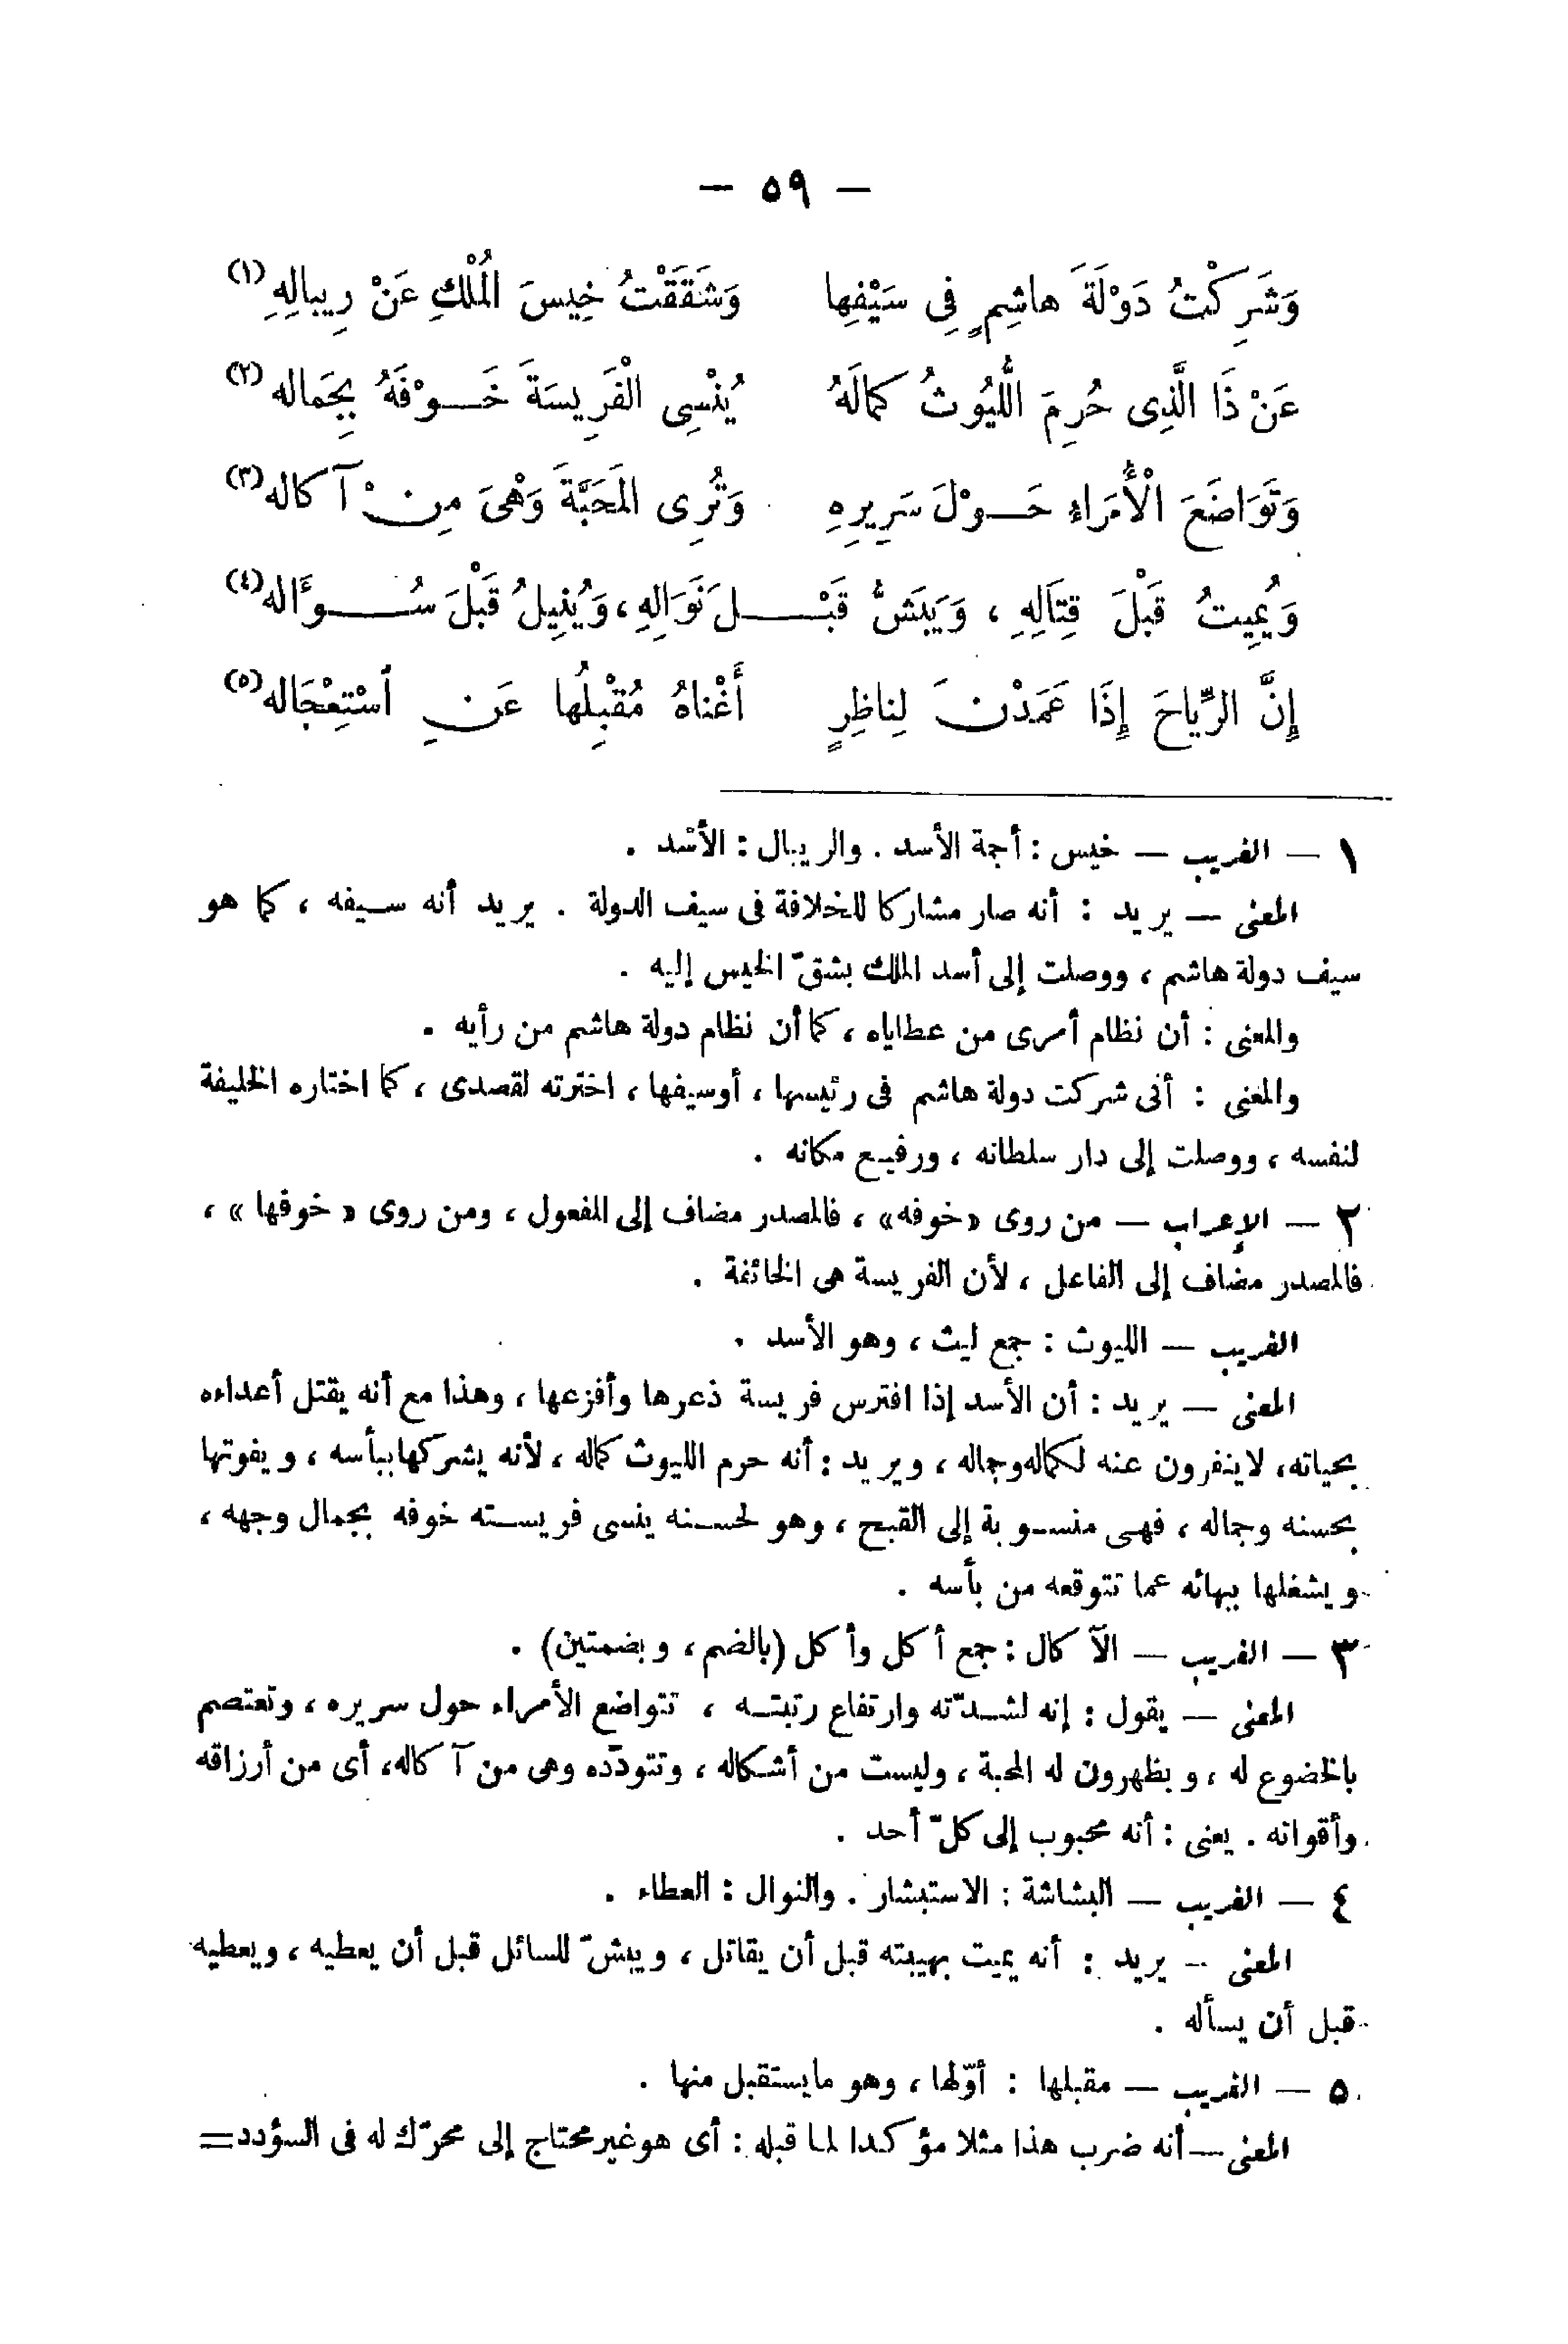 — ٥٩ —
وَشَرِكْتُ دَوْلَةَ هاشِمٍ فِى سَيْفِها وَشَقَقْتُ خِيسَ الْمُلْكِ عَنْ رِيبالِهِ (١)
عَنْ ذَا الَّذِى حُرِمَ اللُّيُوثُ كمالَهُ يُنْسِى الْفَرِيسَةَ خَوْفَهُ بِجَماله (٢)
وَتَوَاضَعَ الْأُمَرَاءُ حَوْلَ سَرِيرِهِ وَتُرِى المَحَبَّةَ وَهْىَ مِنْ آكاله (٣)
وَيُمِيتُ قَبْلَ قِتَالِهِ ، وَيَبَشُّ قَبْلَ نَوَالِهِ ، وَيُنِيلُ قَبْلَ سُوءَاله (٤)
إِنَّ الرِّياحَ إِذَا عَمَدْنَ لِناظِرٍ أَغْناهُ مُقْبِلُها عَنِ اسْتِعْجَاله (٥)
١ — الغريب — خيس : أجمة الأسد . والريبال : الأسْد .
المعنى — يريد : أنه صار مشاركا للخلافة فى سيف الدولة . يريد أنه سيفه ، كما هو
سيف دولة هاشم ، ووصلت إلى أسد الملك بشقّ الخيس إليه .
والمعنى : أن نظام أمرى من عطاياه ، كما أن نظام دولة هاشم من رأيه .
والمعنى : أنى شركت دولة هاشم فى رئيسها ، أوسيفها ، اخترته لقصدى ، كما اختاره الخليفة
لنفسه ، ووصلت إلى دار سلطانه ، ورفيع مكانه .
٢ — الإعراب — من روى «خوفه» ، فالمصدر مضاف إلى المفعول ، ومن روى « خوفها » ،
فالمصدر مضاف إلى الفاعل ، لأن الفريسة هى الخائفة .
الغريب — الليوث : جمع ليث ، وهو الأسد .
المعنى — يريد : أن الأسد إذا افترس فريسة ذعرها وأفزعها ، وهذا مع أنه يقتل أعداءه
بحياته، لاينفرون عنه لكماله وجماله ، ويريد : أنه حرم الليوث كماله ، لأنه يشركها ببأسه ، ويفوتها
بحسنه وجماله ، فهى منسوبة إلى القبح ، وهو لحسنه ينسى فريسته خوفه بجمال وجهه ،
ويشغلها ببهائه عما تتوقعه من بأسه .
٣ — الغريب — الآكال : جمع أكل وأكل (بالضم ، وبضمتين) .
المعنى — يقول : إنه لشدّته وارتفاع رتبته ، تتواضع الأمراء حول سريره ، وتعتصم
بالخضوع له ، ويظهرون له المحبة ، وليست من أشكاله ، وتتودّده وهى من آكاله، أى من أرزاقه
وأقواته . يعنى : أنه محبوب إلى كلّ أحد .
٤ — الغريب — البشاشة : الاستبشار . والنوال : العطاء .
المعنى — يريد : أنه يميت بهيبته قبل أن يقاتل ، ويبشّ للسائل قبل أن يعطيه ، ويعطيه
قبل أن يسأله .
٥ — الغريب — مقبلها : أوّلها ، وهو مايستقبل منها .
المعنى — أنه ضرب هذا مثلا مؤكدا لما قبله : أى هو غير محتاج إلى محرّك له فى السؤدد =